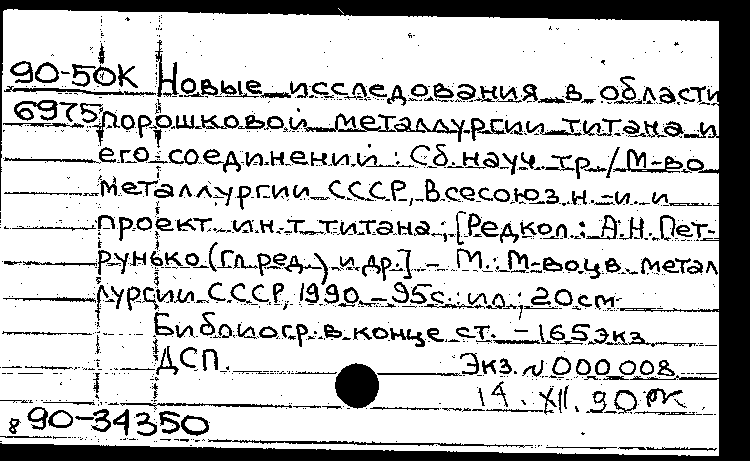 90-50К Новые исследования в области
6975 порошковой металлургии титана и
его соединений : Сб. науч. тр. / М-во
металлургии СССР, Всесоюз. н.-и. и
проект. ин-т титана ; [Редкол.: А.Н. Пет-
рунько (гл. ред.) и др.] – М. : М-во цв. метал
лургии СССР, 1990. – 95 с. : ил. ; 20 см
Библиогр. в конце ст. – 165 экз.
ДСП. Экз. № 000 008
14. XII. 90
8 90-34350